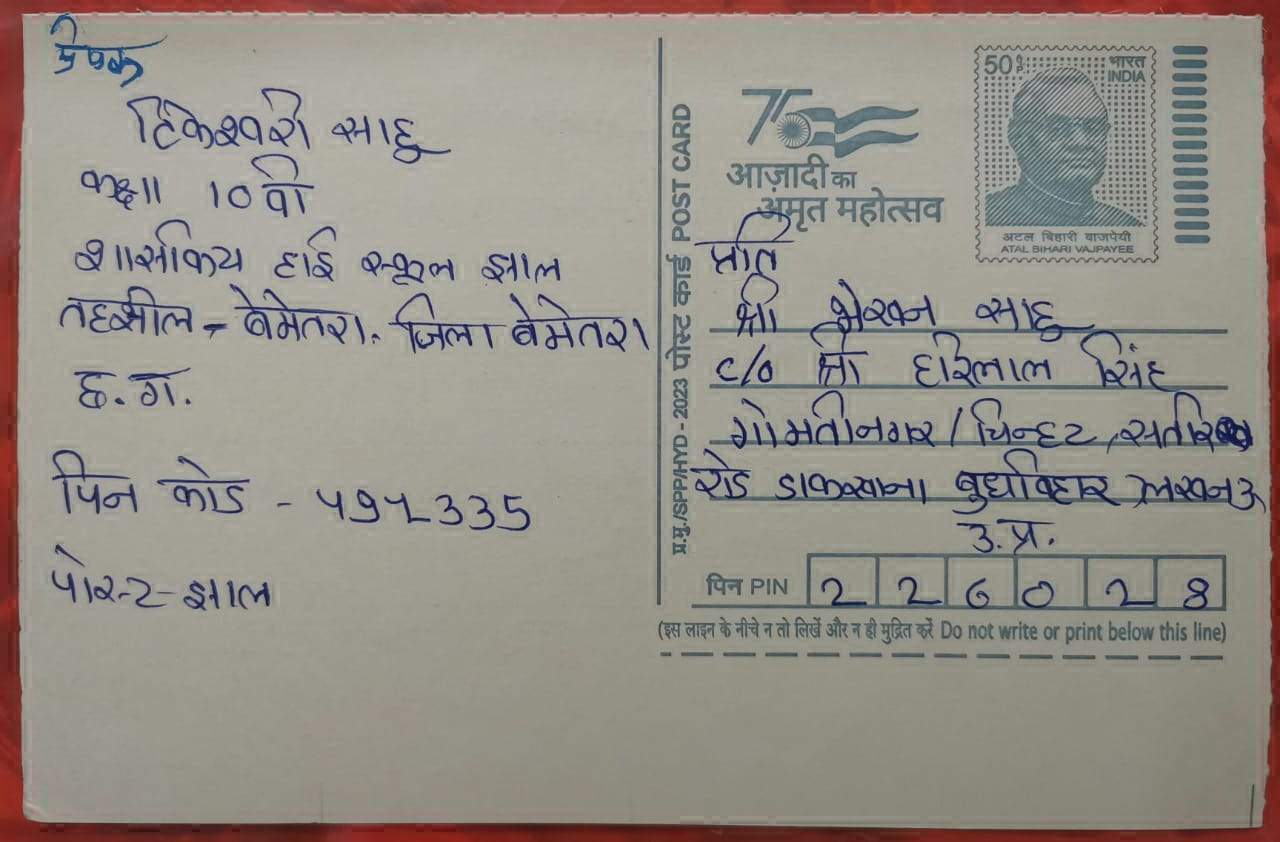 प्रेषक
टिकेश्वरी साहू
कक्षा 10वी
शासकिय हाई स्कूल झाल
तहसील - बेमेतरा. जिला बेमेतरा
छ.ग.
पिन कोड - 491335
पोस्ट - झाल
प्र.मु./SPP/HYD - 2023 पोस्ट कार्ड POST CARD
75
आज़ादी का
अमृत महोत्सव
50
भारत
INDIA
अटल बिहारी वाजपेयी
ATAL BIHARI VAJPAYEE
प्रति
श्री भेखन साहू
c/o श्री हरिलाल सिंह
गोमतीनगर / चिन्हट, सतरिख
रोड डाकखाना बुधविहार, लखनऊ
उ.प्र.
पिन PIN 226028
(इस लाइन के नीचे न तो लिखें और न ही मुद्रित करें Do not write or print below this line)